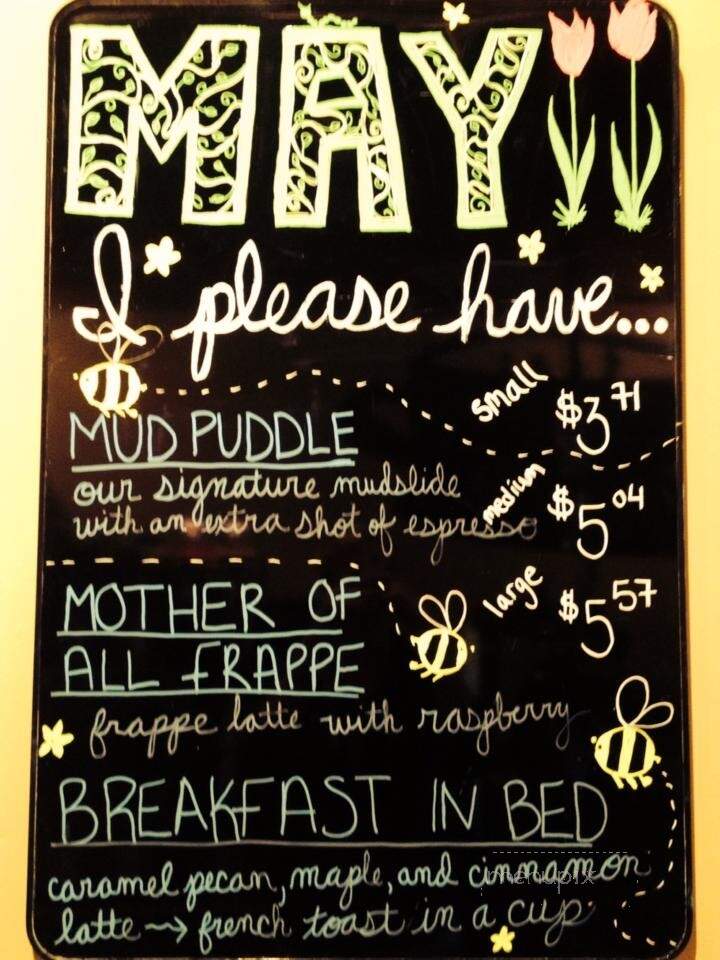 MAY
I please have...
small $3.71
MUD PUDDLE
our signature mudslide
medium $5.04
with an extra shot of espresso
large $5.57
MOTHER OF
ALL FRAPPE
frappe latte with raspberry
BREAKFAST IN BED
caramel pecan, maple, and cinnamon
menupix
latte → french toast in a cup